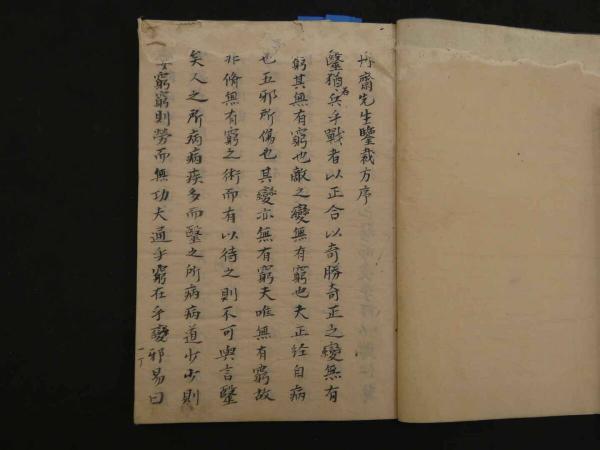 丹齋先生鑒裁方序
毉猶兵乎戰者以正合以奇勝奇正之變無有
窮其無有窮也敵之變無有窮也夫正経自病
也五邪所傷也其變亦無有窮夫唯無有窮故
非脩無有窮之術而有以待之則不可與言毉
矣人之所病病疾多而毉之所病病道少少則
窮窮則勞而無功夫通乎窮在乎變邪易曰